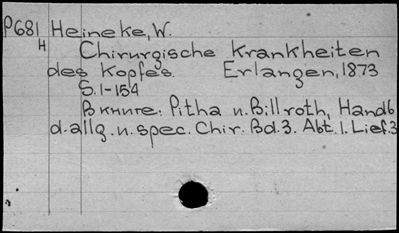 P681 Heineke, W.
H Chirurgische Krankheiten
des Kopfes. Erlangen, 1873
S. 1-154
В книге: Pitha u. Billroth, Handb
d. allg. u. spec. Chir. Bd. 3. Abt. 1. Lief. 3